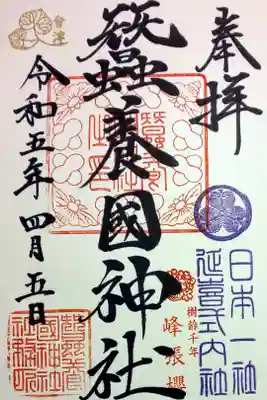 奉拝
日本一社
延喜式内社
樹齢千年
峰張櫻
蠶養國神社
會津
令和五年四月五日